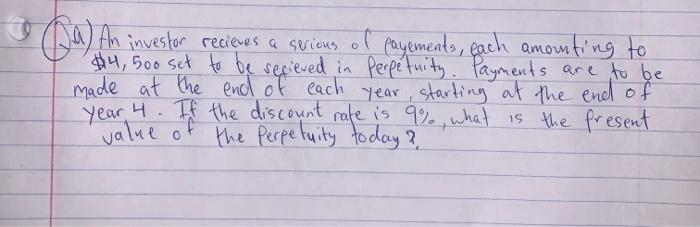 Qa) An investor recieves a serious of payements, each amounting to
$4,500 set to be recieved in Perpetuity. Payments are to be
made at the end of each year, starting at the end of
year 4. If the discount rate is 9%, what is the present
value of the perpetuity today?